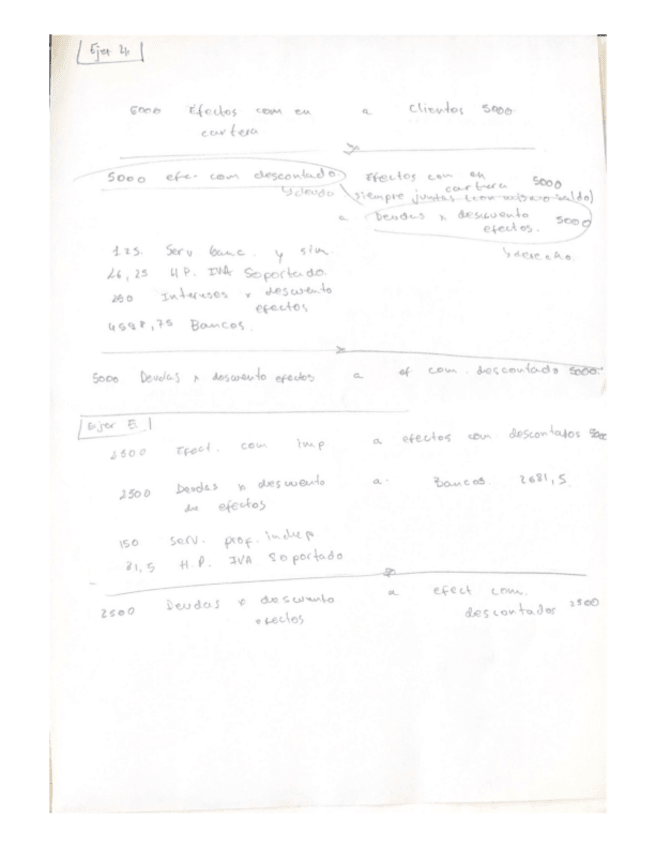 Ejer 4
5000 Efectos com en a Clientes 5000
cartera
5000 efec com descontado Efectos com en
cartera 5000
↳deudo siempre juntas (con mismo saldo)
a Deudas x descuento 5000
efectos.
↳derecho.
125. Serv banc. y sim.
26,25 H.P. IVA Soportado.
250 Intereses x descuento
efectos
4598,75 Bancos.
5000 Deudas x descuento efectos a ef com. descontado 5000
Ejer 5
2500 Efect. com imp a efectos com. descontados 5000
2500 Deudas x descuento a Bancos 2681,5
de efectos
150 Serv. prof. indep
31,5 H.P. IVA Soportado
2500 Deudas x descuento a efect com.
efectos descontados 2500